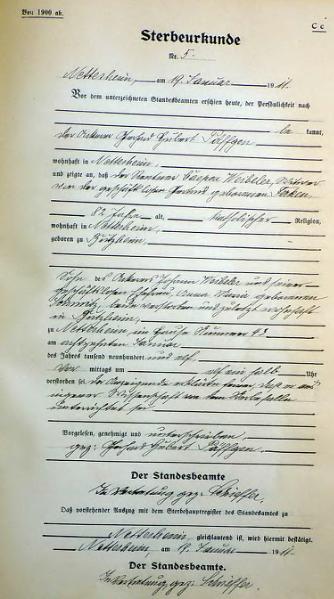 Vor: 1900 ab.
C c
Sterbeurkunde
Nr. 5.
Nettersheim, am 19. Januar 1911.
Vor dem unterzeichneten Standesbeamten erschien heute, der Persönlichkeit nach
be kannt,
der Ackerer Gerhard Hubert Päffgen
wohnhaft in Nettersheim,
und zeigte an, daß der Rentner Caspar Weibeler, Witwer
von der geschäftslosen Gertrud geborenen
82 Jahre alt, katholischer Religion,
wohnhaft in Nettersheim,
geboren zu
Sohn des Ackerers Johann Weibeler und seiner
geschäftslosen Ehefrau, Anna Maria geborenen
Schmitz, beide verstorben und zuletzt wohnhaft
in
zu Nettersheim im Hause Nummer 93
am achtzehnten Januar
des Jahres tausend neunhundert und elf
Vor mittags um elf ein halb Uhr
verstorben sei. Der Anzeigende erklärte ferner, daß er aus
eigener Wissenschaft von dem Sterbefalle
unterrichtet sei.
Vorgelesen, genehmigt und unterschrieben
gez: Gerhard Hubert Päffgen.
Der Standesbeamte
In Vertretung gez:
Daß vorstehender Auszug mit dem Sterbehauptregister des Standesamtes zu
Nettersheim gleichlautend ist, wird hiermit bestätigt.
Nettersheim, am 19. Januar 1911.
Der Standesbeamte.
In Vertretung gez: